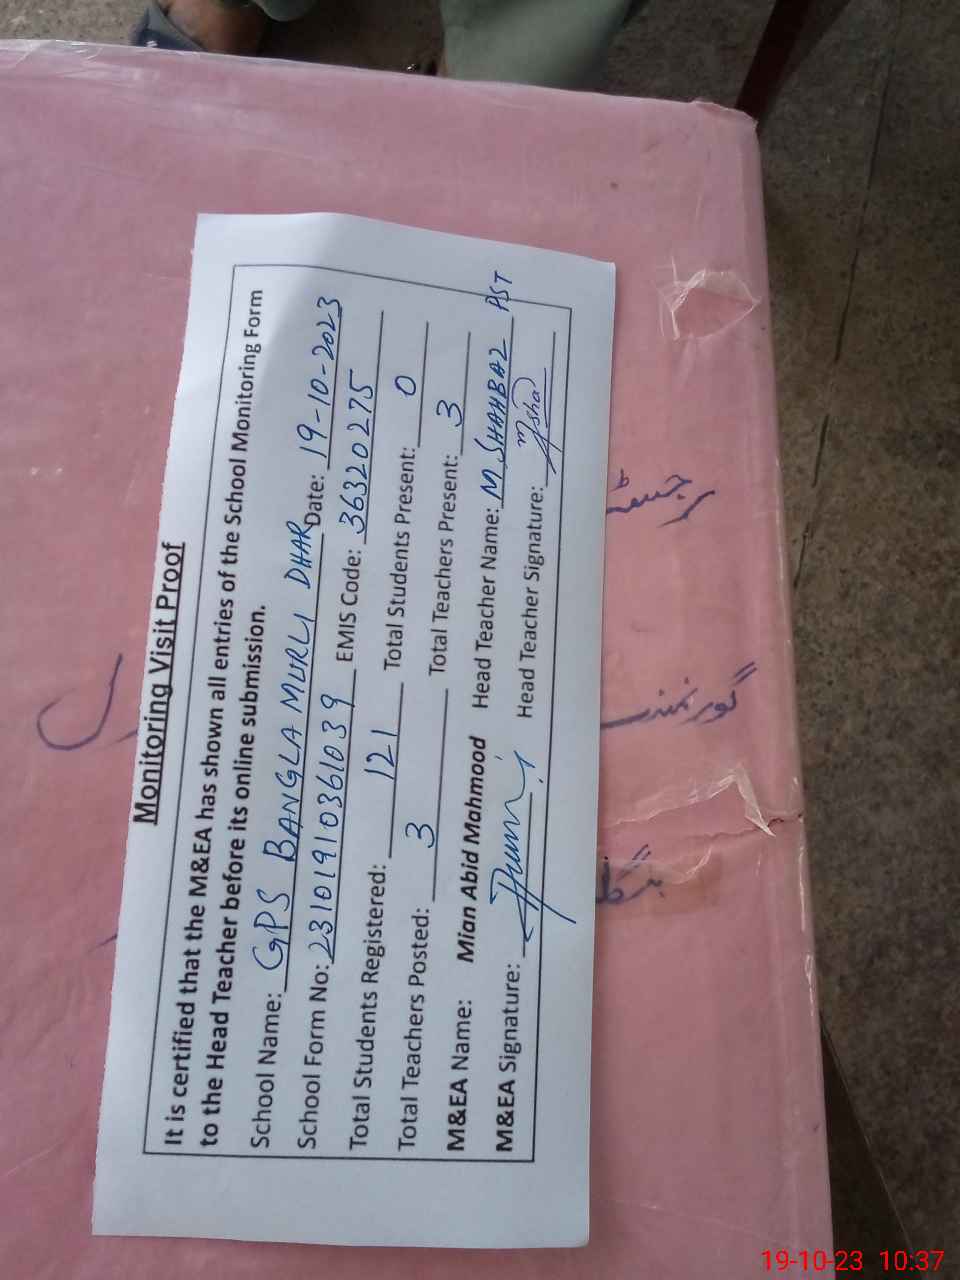 Monitoring Visit Proof
It is certified that the M&EA has shown all entries of the School Monitoring Form
to the Head Teacher before its online submission.
School Name: GPS BANGLA MURLI DHAR Date: 19-10-2023
School Form No: 23101910361039 EMIS Code: 36320275
Total Students Registered: 121 Total Students Present: 0
Total Teachers Posted: 3 Total Teachers Present: 3
M&EA Name: Mian Abid Mahmood Head Teacher Name: M. SHAHBAZ PST
M&EA Signature: Head Teacher Signature:
گورنمنٹ
19-10-23 10:37